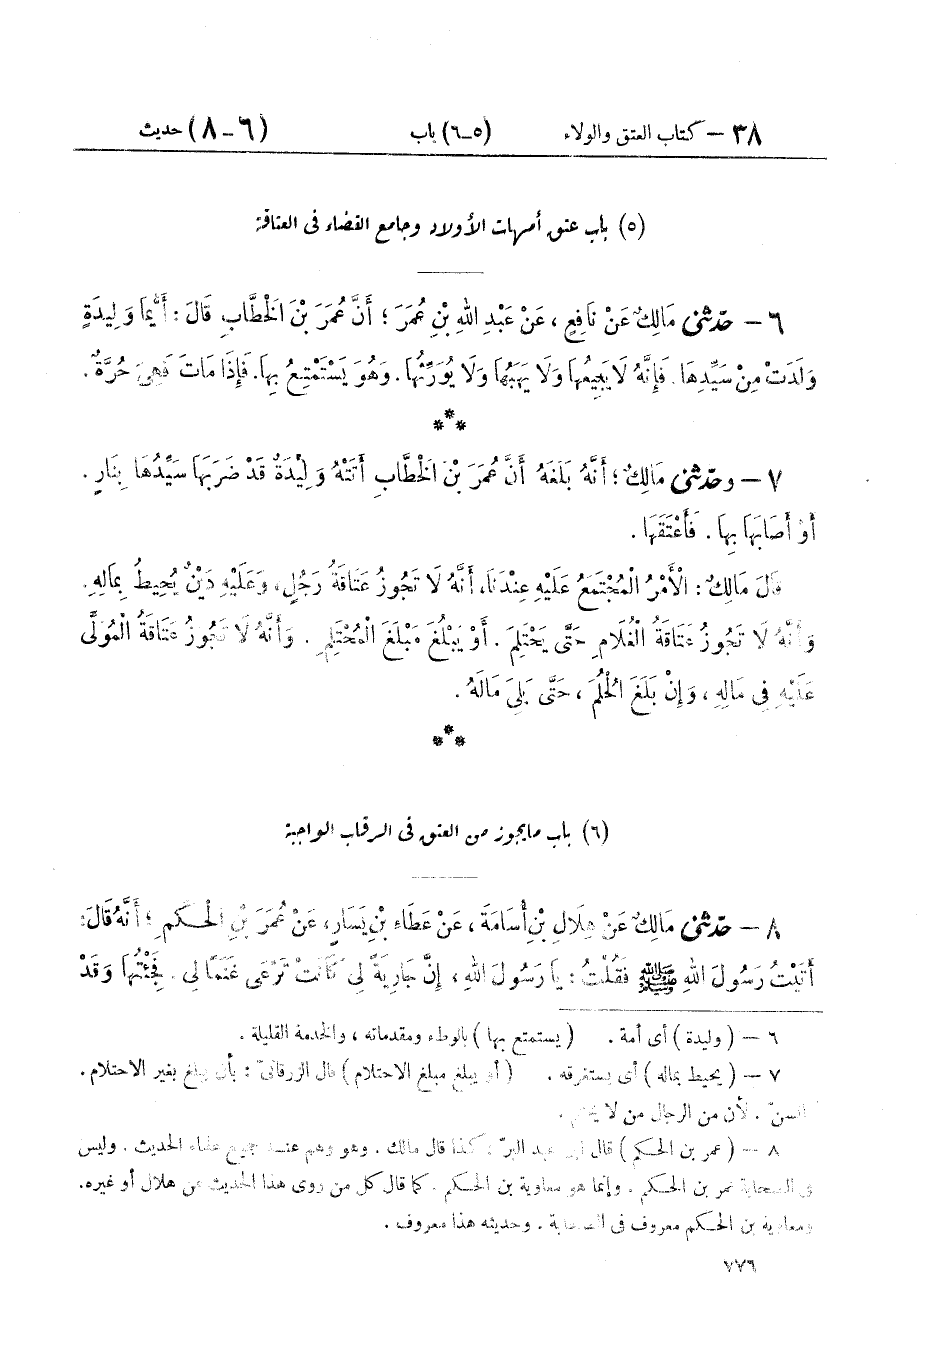 ٣٨ – كتاب العتق والولاء (٥–٦) باب (٦–٨) حديث
(٥) باب عتق أمهات الأولاد وجامع القضاء فى العتاقة
٦ – حدّثنى مَالِكٌ عَنْ نَافِعٍ ، عَنْ عَبْدِ اللهِ بْنِ عُمَرَ ؛ أَنَّ عُمَرَ بْنَ الْخَطَّابِ قَالَ : أَيُّمَا وَلِيدَةٍ
وَلَدَتْ مِنْ سَيِّدِهَا . فَإِنَّهُ لَا يَبِيعُهَا وَلَا يَهَبُهَا وَلَا يُوَرِّثُهَا . وَهُوَ يَسْتَمْتِعُ بِهَا . فَإِذَا مَاتَ فَهِىَ حُرَّةٌ .
***
٧ – وحدّثنى مَالِكٌ ؛ أَنَّهُ بَلَغَهُ أَنَّ عُمَرَ بْنَ الْخَطَّابِ أَتَتْهُ وَلِيدَةٌ قَدْ ضَرَبَهَا سَيِّدُهَا بِنَارٍ .
أَوْ أَصَابَهَا بِهَا . فَأَعْتَقَهَا .
قَالَ مَالِكٌ : الْأَمْرُ الْمُجْتَمَعُ عَلَيْهِ عِنْدَنَا ، أَنَّهُ لَا تَجُوزُ عَتَاقَةُ رَجُلٍ ، وَعَلَيْهِ دَيْنٌ يُحِيطُ بِمَالِهِ .
وَأَنَّهُ لَا تَجُوزُ عَتَاقَةُ الْغُلَامِ حَتَّى يَحْتَلِمَ . أَوْ يَبْلُغَ مَبْلَغَ الْمُحْتَلِمِ . وَأَنَّهُ لَا تَجُوزُ عَتَاقَةُ الْمُوَلَّى
عَلَيْهِ فِى مَالِهِ ، وَإِنْ بَلَغَ الْحُلُمَ ، حَتَّى يَلِىَ مَالَهُ .
***
(٦) باب مايجوز من العتق فى الرقاب الواجبة
٨ – حدّثنى مَالِكٌ عَنْ هِلَالِ بْنِ أُسَامَةَ ، عَنْ عَطَاءِ بْنِ يَسَارٍ ، عَنْ عُمَرَ بْنِ الْحَكَمِ ؛ أَنَّهُ قَالَ :
أَتَيْتُ رَسُولَ اللهِ ﷺ فَقُلْتُ : يَا رَسُولَ اللهِ ، إِنَّ جَارِيَةً لِى كَانَتْ تَرْعَى غَنَمًا لِى . فَجِئْتُهَا وَقَدْ
٦ – ( وليدة ) أى أمة . ( يستمتع بها ) بالوطء ومقدماته ، والخدمة القليلة .
٧ – ( يحيط بماله ) أى يستغرقه . ( أو يبلغ مبلغ الاحتلام ) قال الزرقانىّ : بأن يبلغ بغير الاحتلام .
السنّ . لأن من الرجال من لا يحتلم .
٨ – ( عمر بن الحكم ) قال ابن عبد البرّ : كذا قال مالك . وهو وهم عند جميع علماء الحديث . وليس
فى الصحابة عمر بن الحكم . وإنما هو معاوية بن الحكم . كما قال كل من روى هذا الحديث عن هلال أو غيره .
ومعاوية بن الحكم معروف فى الصحابة . وحديثه هذا معروف .
٧٧٦